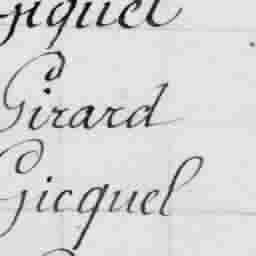 Giquel
Girard
Gicquel